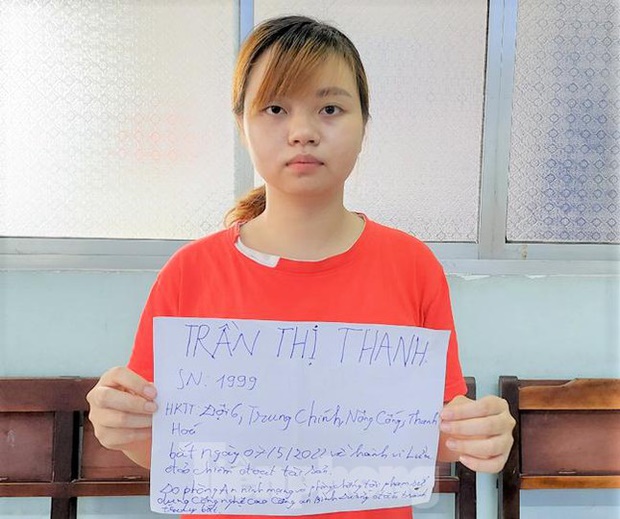 TRẦN THỊ THANH
SN: 1999
HKTT: Đội 6, Trung Chính, Nông Cống, Thanh
Hoá
bắt ngày 07/5/2022 về hành vi Lừa
đảo chiếm đoạt tài sản.
Do phòng An ninh mạng và phòng chống tội phạm sử
dụng Công nghệ Cao Công an Bình Dương